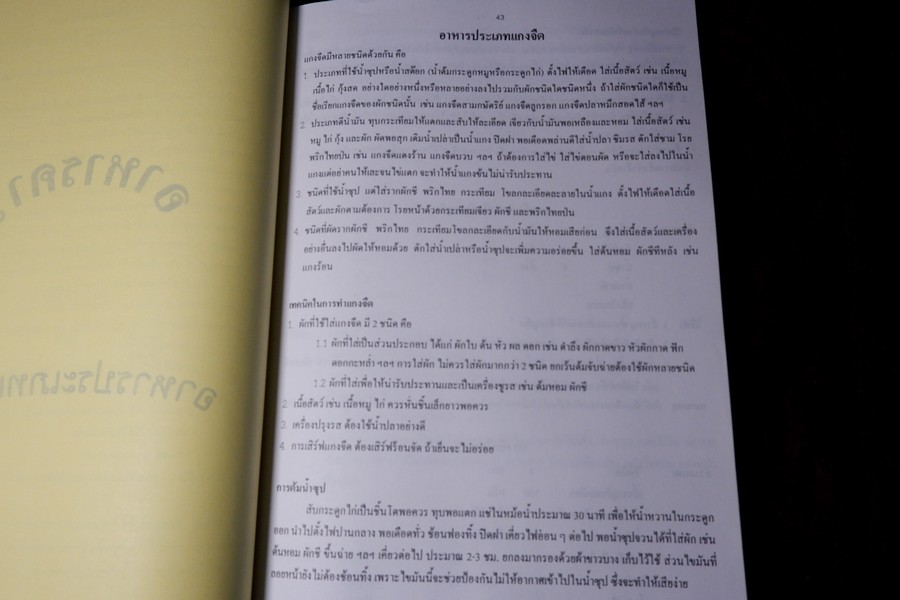 43
อาหารประเภทแกงจืด
แกงจืดมีหลายชนิดด้วยกัน คือ
1. ประเภทที่ใช้น้ำซุปหรือน้ำสต๊อก (น้ำต้มกระดูกหมูหรือกระดูกไก่) ตั้งไฟให้เดือด ใส่เนื้อสัตว์ เช่น เนื้อหมู
เนื้อไก่ กุ้งสด อย่างใดอย่างหนึ่งหรือหลายอย่างลงไปรวมกับผักชนิดใดชนิดหนึ่ง ถ้าใส่ผักชนิดใดก็ใช้เป็น
ชื่อเรียกแกงจืดของผักชนิดนั้น เช่น แกงจืดสามกษัตริย์ แกงจืดลูกรอก แกงจืดปลาหมึกสอดไส้ ฯลฯ
2. ประเภทตีน้ำมัน ทุบกระเทียมให้แตกและสับให้ละเอียด เจียวกับน้ำมันพอเหลืองและหอม ใส่เนื้อสัตว์ เช่น
หมู ไก่ กุ้ง และผัก ผัดพอสุก เติมน้ำเปล่าเป็นน้ำแกง ปิดฝา พอเดือดพล่านดีใส่น้ำปลา ชิมรส ตักใส่ชาม โรย
พริกไทยป่น เช่น แกงจืดแตงร้าน แกงจืดบวบ ฯลฯ ถ้าต้องการใส่ไข่ ใส่ไข่ตอนผัด หรือจะใส่ลงไปในน้ำ
แกงแต่อย่าคนให้เละจนไข่แตก จะทำให้น้ำแกงข้นไม่น่ารับประทาน
3. ชนิดที่ใช้น้ำซุป แต่ใส่รากผักชี พริกไทย กระเทียม โขลกละเอียดละลายในน้ำแกง ตั้งไฟให้เดือดใส่เนื้อ
สัตว์และผักตามต้องการ โรยหน้าด้วยกระเทียมเจียว ผักชี และพริกไทยป่น
4. ชนิดที่ผัดรากผักชี พริกไทย กระเทียมโขลกละเอียดกับน้ำมันให้หอมเสียก่อน จึงใส่เนื้อสัตว์และเครื่อง
อย่างอื่นลงไปผัดให้หอมด้วย ตักใส่น้ำเปล่าหรือน้ำซุปจะเพิ่มความอร่อยขึ้น ใส่ต้นหอม ผักชีทีหลัง เช่น
แกงร้อน
เทคนิคในการทำแกงจืด
1. ผักที่ใช้ใส่แกงจืด มี 2 ชนิด คือ
1.1 ผักที่ใส่เป็นส่วนประกอบ ได้แก่ ผักใบ ต้น หัว ผล ดอก เช่น ตำลึง ผักกาดขาว หัวผักกาด ฟัก
ดอกกะหล่ำ ฯลฯ การใส่ผัก ไม่ควรใส่ผักมากกว่า 2 ชนิด ยกเว้นต้มจับฉ่ายต้องใช้ผักหลายชนิด
1.2 ผักที่ใส่เพื่อให้น่ารับประทานและเป็นเครื่องชูรส เช่น ต้นหอม ผักชี
2. เนื้อสัตว์ เช่น เนื้อหมู ไก่ ควรหั่นชิ้นเล็กยาวพอควร
3. เครื่องปรุงรส ต้องใช้น้ำปลาอย่างดี
4. การเสิร์ฟแกงจืด ต้องเสิร์ฟร้อนจัด ถ้าเย็นจะไม่อร่อย
การต้มน้ำซุป
สับกระดูกไก่เป็นชิ้นโตพอควร ทุบพอแตก แช่ในหม้อน้ำประมาณ 30 นาที เพื่อให้น้ำหวานในกระดูก
ออก นำไปตั้งไฟปานกลาง พอเดือดทั่ว ช้อนฟองทิ้ง ปิดฝา เคี่ยวไฟอ่อน ๆ ต่อไป พอน้ำซุปจวนได้ที่ใส่ผัก เช่น
ต้นหอม ผักชี ขึ้นฉ่าย ฯลฯ เคี่ยวต่อไป ประมาณ 2-3 ชม. ยกลงมากรองด้วยผ้าขาวบาง เก็บไว้ใช้ ส่วนไขมันที่
ลอยหน้ายังไม่ต้องช้อนทิ้ง เพราะไขมันนี้จะช่วยป้องกันไม่ให้อากาศเข้าไปในน้ำซุป ซึ่งจะทำให้เสียง่าย